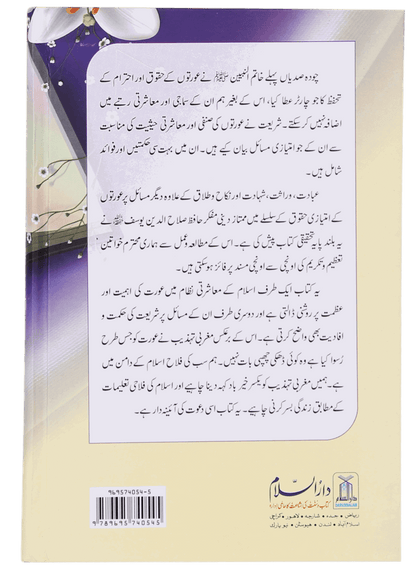 چودہ صدیاں پہلے خاتم النبیین ﷺ نے عورتوں کے حقوق اور احترام کے
تحفظ کا جو چارٹر عطا کیا، اس کے بغیر ہم ان کے سماجی اور معاشرتی رتبے میں
اضافہ نہیں کر سکتے۔ شریعت نے عورتوں کی صنفی اور معاشرتی حیثیت کی مناسبت
سے ان کے جو امتیازی مسائل بیان کیے ہیں۔ ان میں بہت سی حکمتیں اور فوائد
شامل ہیں۔
عبادت، وراثت، شہادت اور نکاح و طلاق کے علاوہ دیگر مسائل پر عورتوں
کے امتیازی حقوق کے سلسلے میں ممتاز دینی مفکر حافظ صلاح الدین یوسف نے
یہ بلند پایہ تحقیقی کتاب پیش کی ہے۔ اس کے مطالعہ و عمل سے ہماری محترم خواتین
تعظیم و تکریم کی اونچی سے اونچی مسند پر فائز ہو سکتی ہیں۔
یہ کتاب ایک طرف اسلام کے معاشرتی نظام میں عورت کی اہمیت اور
عظمت پر روشنی ڈالتی ہے اور دوسری طرف ان کے مسائل پر شریعت کی حکمت و
افادیت بھی واضح کرتی ہے۔ اس کے برعکس مغربی تہذیب نے عورت کو جس طرح
رسوا کیا ہے وہ کوئی ڈھکی چھپی بات نہیں۔ ہم سب کی فلاح اسلام کے دامن میں
ہے۔ ہمیں مغربی تہذیب کو یکسر خیر باد کہہ دینا چاہیے اور اسلام کی فلاحی تعلیمات
کے مطابق زندگی بسر کرنی چاہیے۔ یہ کتاب اسی دعوت کی آئینہ دار ہے۔
دارالسلام
کتاب و سنت کی اشاعت کا عالمی ادارہ
ریاض ۔ جدہ ۔ شارجہ ۔ لاہور ۔ کراچی
اسلام آباد ۔ لندن ۔ ہیوسٹن ۔ نیو یارک
969574054-5
9 789695 740545